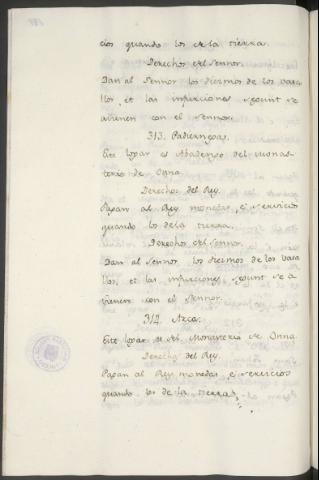 cios quando los de la tierra.
Derechos del Sennor.
Dan al Sennor los diezmos de los vasa
llos, et las infurciones segunt se
avienen con el sennor.
313. Padiernegas.
Este logar es Abadengo del monas-
terio de Onna.
Derechos del Rey.
Pagan al Rey monedas, é servicios
quando los de la tierra.
Derechos del Sennor.
Dan al Sennor los diezmos de los vasa
llos, et las infurciones, segunt se a
vienen con el Sennor.
312. Arce.
Este logar es del Monasterio de Onna.
Derechos del Rey.
Pagan al Rey monedas é servicios
quando los de la tierra.